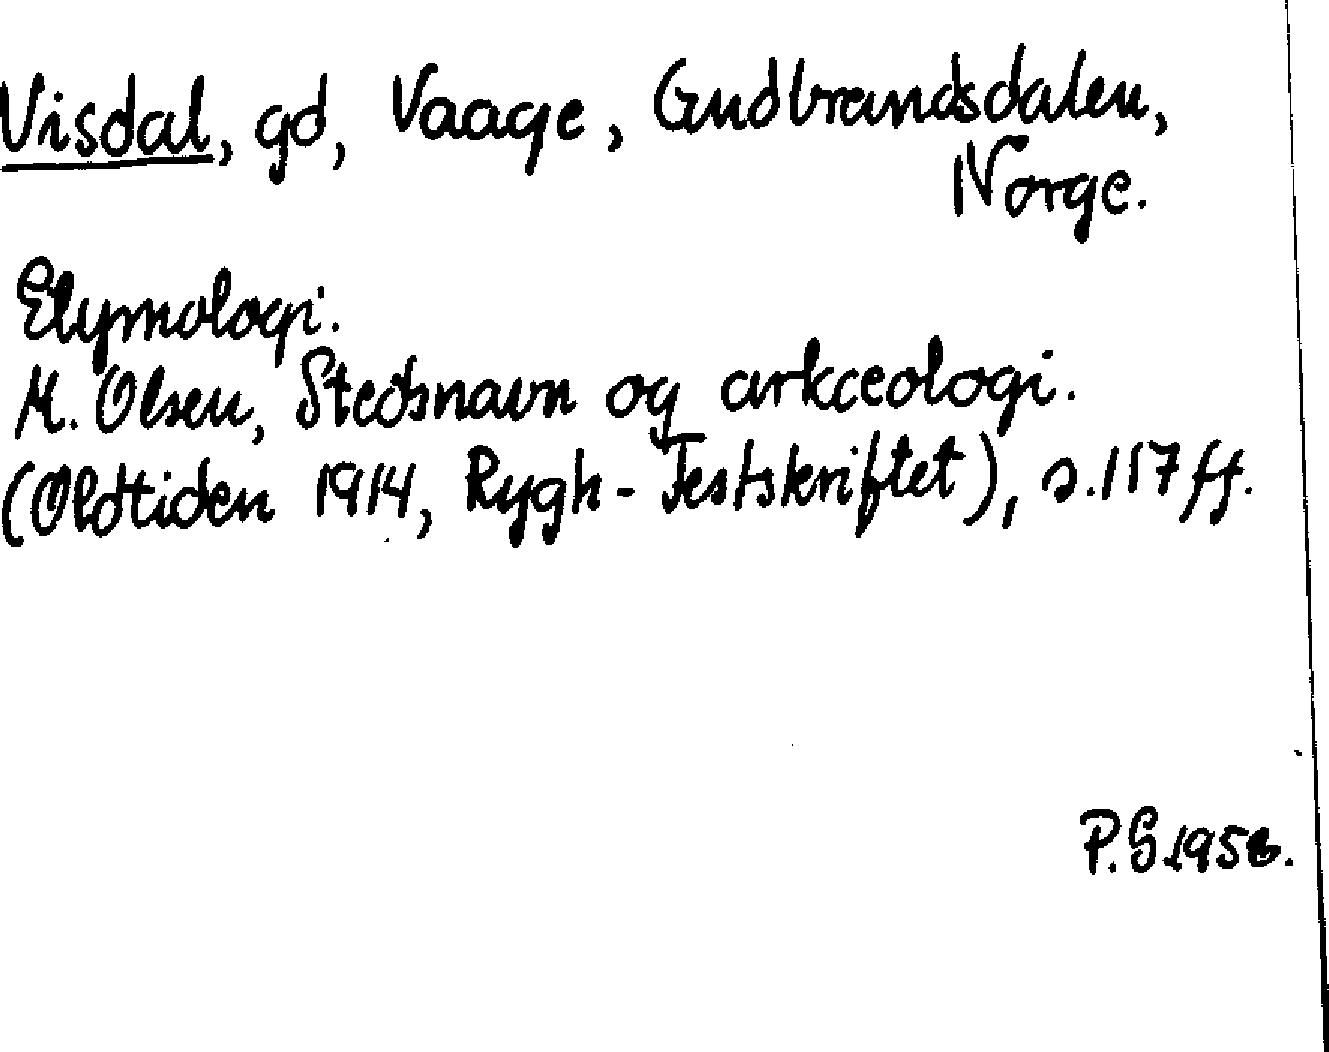 Visdal, gd, Vaage, Gudbrandsdalen,
Norge.
Etymologi.
M. Olsen, Stedsnavn og arkæologi.
(Oldtiden 1914, Rygh-Festskriftet), s.117 ff.
P.G.